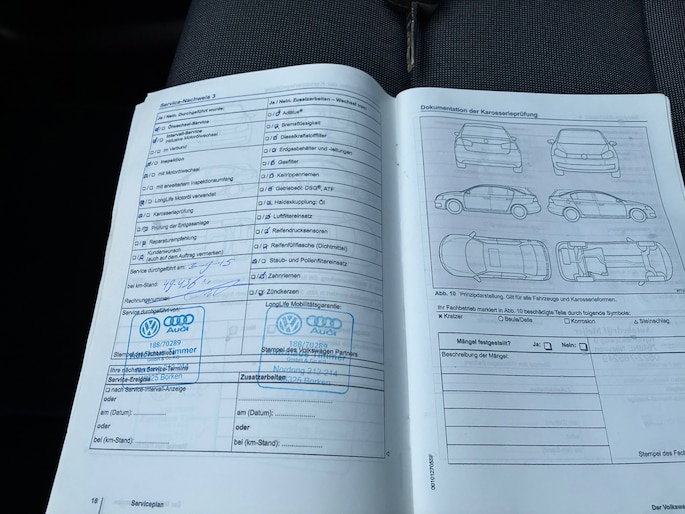 Service-Nachweis 3
Ja / Nein. Durchgeführt wurde:
Ölwechsel-Service
Intervall-Service
inklusive Motorölwechsel
im Verbund
Inspektion
mit Motorölwechsel
mit erweitertem Inspektionsumfang
LongLife Motoröl verwendet
Karosserieprüfung
Prüfung der Erdgasanlage
Reparaturempfehlung
Kundenwunsch
(auch auf dem Auftrag vermerken)
Service durchgeführt am:
bei km-Stand:
Rechnungsnummer:
Service durchgeführt von:
Audi
188/70289
Timmer
GmbH & Co KG
46325 Borken
Service-Ereignis
nach Service-Intervall-Anzeige
oder
am (Datum):
oder
bei (km-Stand):
Ja / Nein. Zusatzarbeiten – Wechsel von:
AdBlue®
Bremsflüssigkeit
Dieselkraftstofffilter
Erdgasbehälter und -leitungen
Gasfilter
Keilrippenriemen
Getriebeöl: DSG®, ATF
Haldexkupplung: Öl
Luftfiltereinsatz
Reifendrucksensoren
Reifenfüllflasche (Dichtmittel)
Staub- und Pollenfiltereinsatz
Zahnriemen
Zündkerzen
LongLife Mobilitätsgarantie:
Audi
188/70289
Timmer
Stempel des Volkswagen Partners
GmbH & Co KG
Nordring 212-214
46325 Borken
Zusatzarbeiten
am (Datum):
oder
bei (km-Stand):
18 Serviceplan
Dokumentation der Karosserieprüfung
Abb. 10 Prinzipdarstellung. Gilt für alle Fahrzeuge und Karosserieformen.
Ihr Fachbetrieb markiert in Abb. 10 beschädigte Teile durch folgende Symbole:
× Kratzer ○ Beule/Delle □ Korrosion △ Steinschlag
Mängel festgestellt? Ja: Nein:
Beschreibung der Mängel:
Stempel des Fach
Der Volkswa